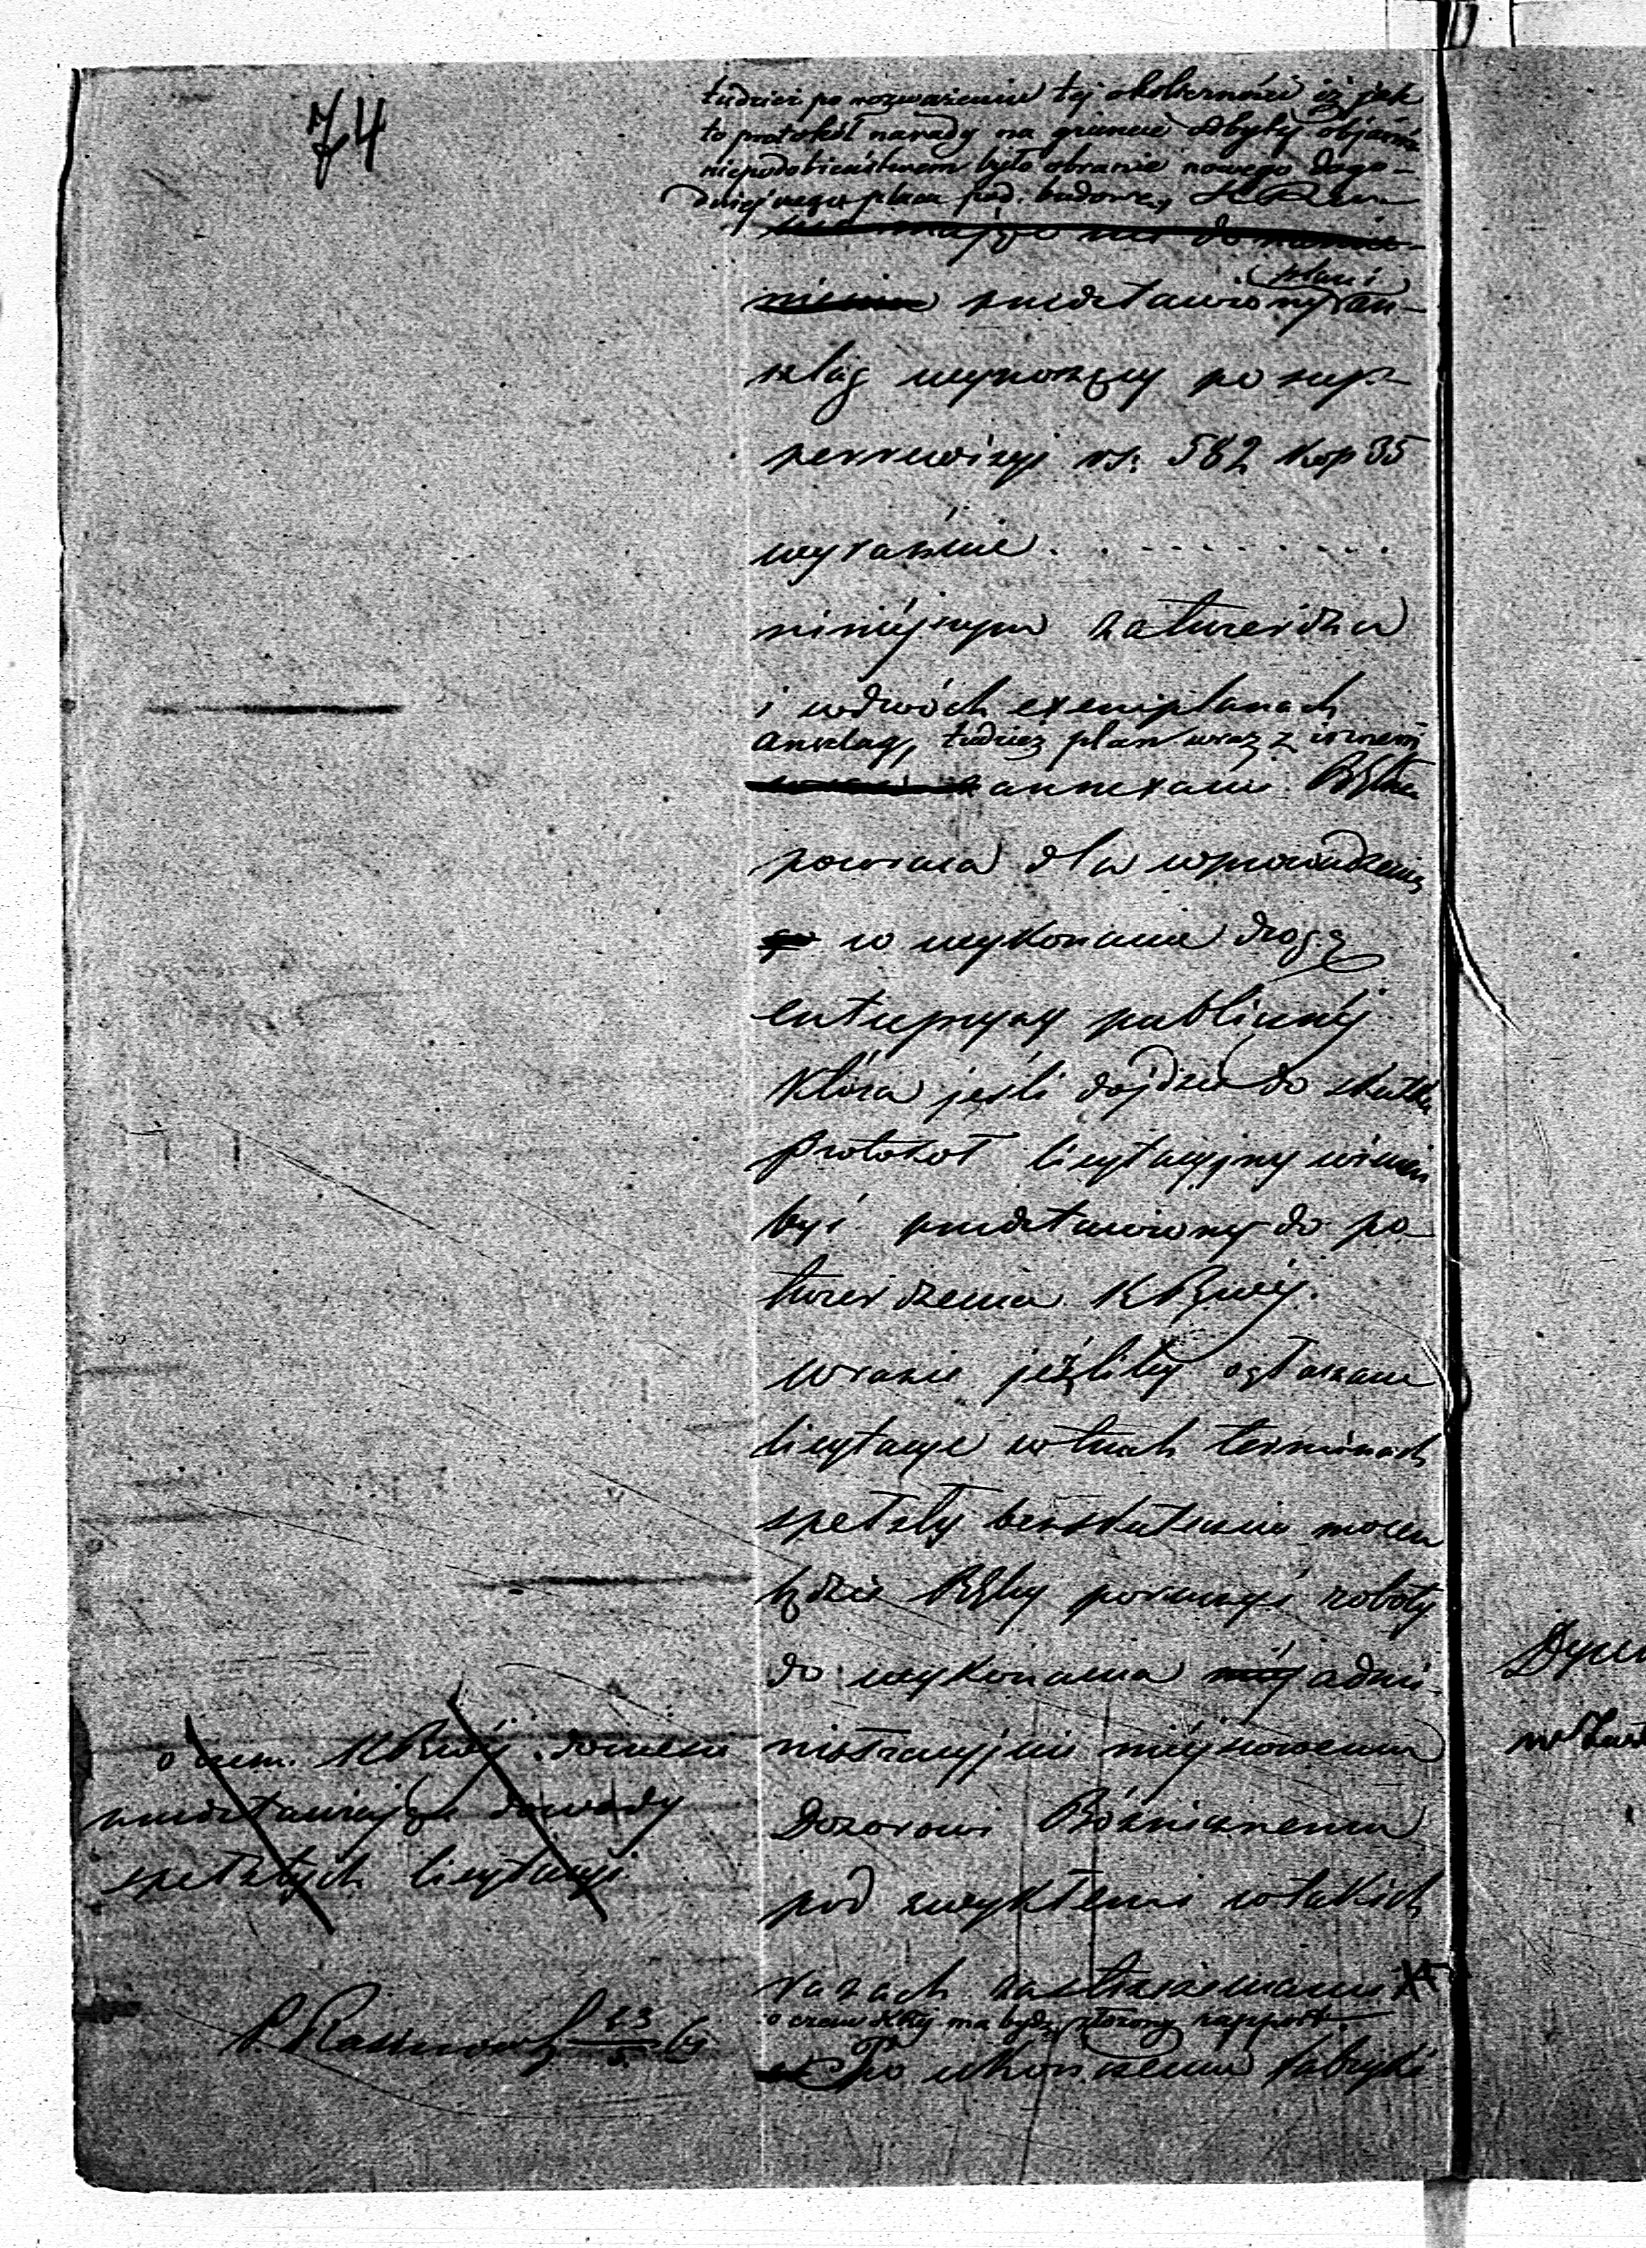 74
tudzież po rozważeniu tej okoliczności iż jak
to protokół narady na gruncie odbyty objaśnia
niepodobieństwem było obranie nowego dogo-
dniejszego placu pod budowę
plan i
przedstawiony an-
szlag wynoszący po sup-
perrewizyi rs: 582 kop 35
wyraźnie . . . . . . . . . .
niniéjszym zatwierdza
i w dwóch exemplarach
anszlag, tudzież plan wraz z innemi
annexami
powraca dla wprowadzenia
w wykonanie drogą
entrepryzy publicznéj
która jeśli dojdzie do skutku
protokół licytacyjny winien
być przedstawiony do po-
twierdzenia K Rząéj.
w razie jeżliby ogłaszane
licytacye w trzech terminach
spełzły bezskutecznie mocen
będzie poruczyć roboty
do wykonania admi-
nistracyjnie miéjscowemu
Dozorowi Bóżniczemu
pod zwykłemi w takich
razach zastrzeżeniami
o czem ma być złożony rapport
po ukończeniu fabryki
o czem. doniesie
przedstawiając dowody
spełzłych licytacyi
Dyre